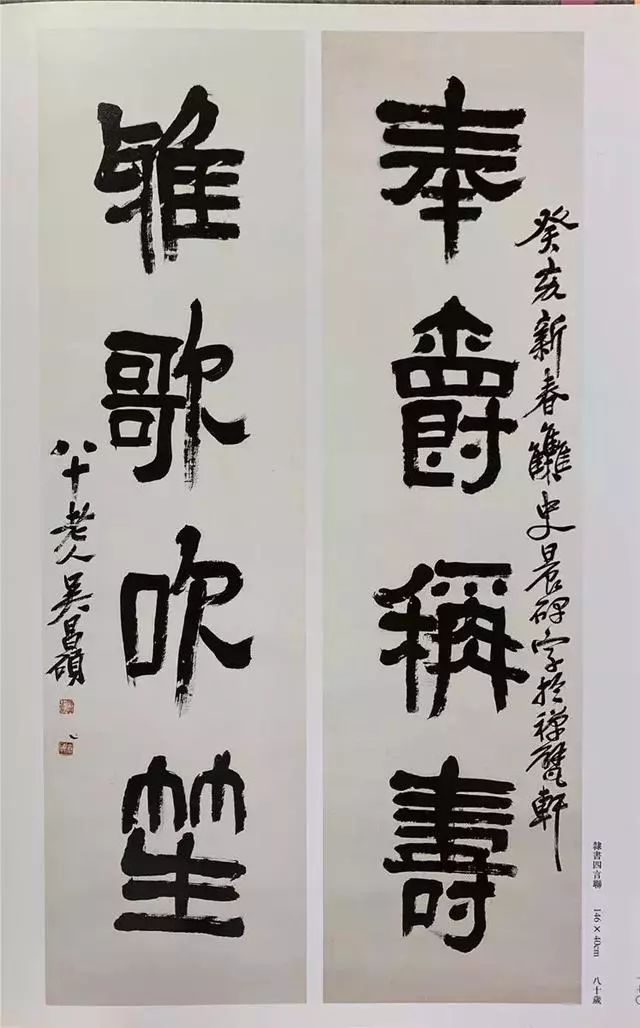 奉爵稱壽
癸亥新春雧史晨碑字於禪甓軒
雅歌吹笙
八十老人吳昌碩
隸書四言聯　146×40cm　八十歲